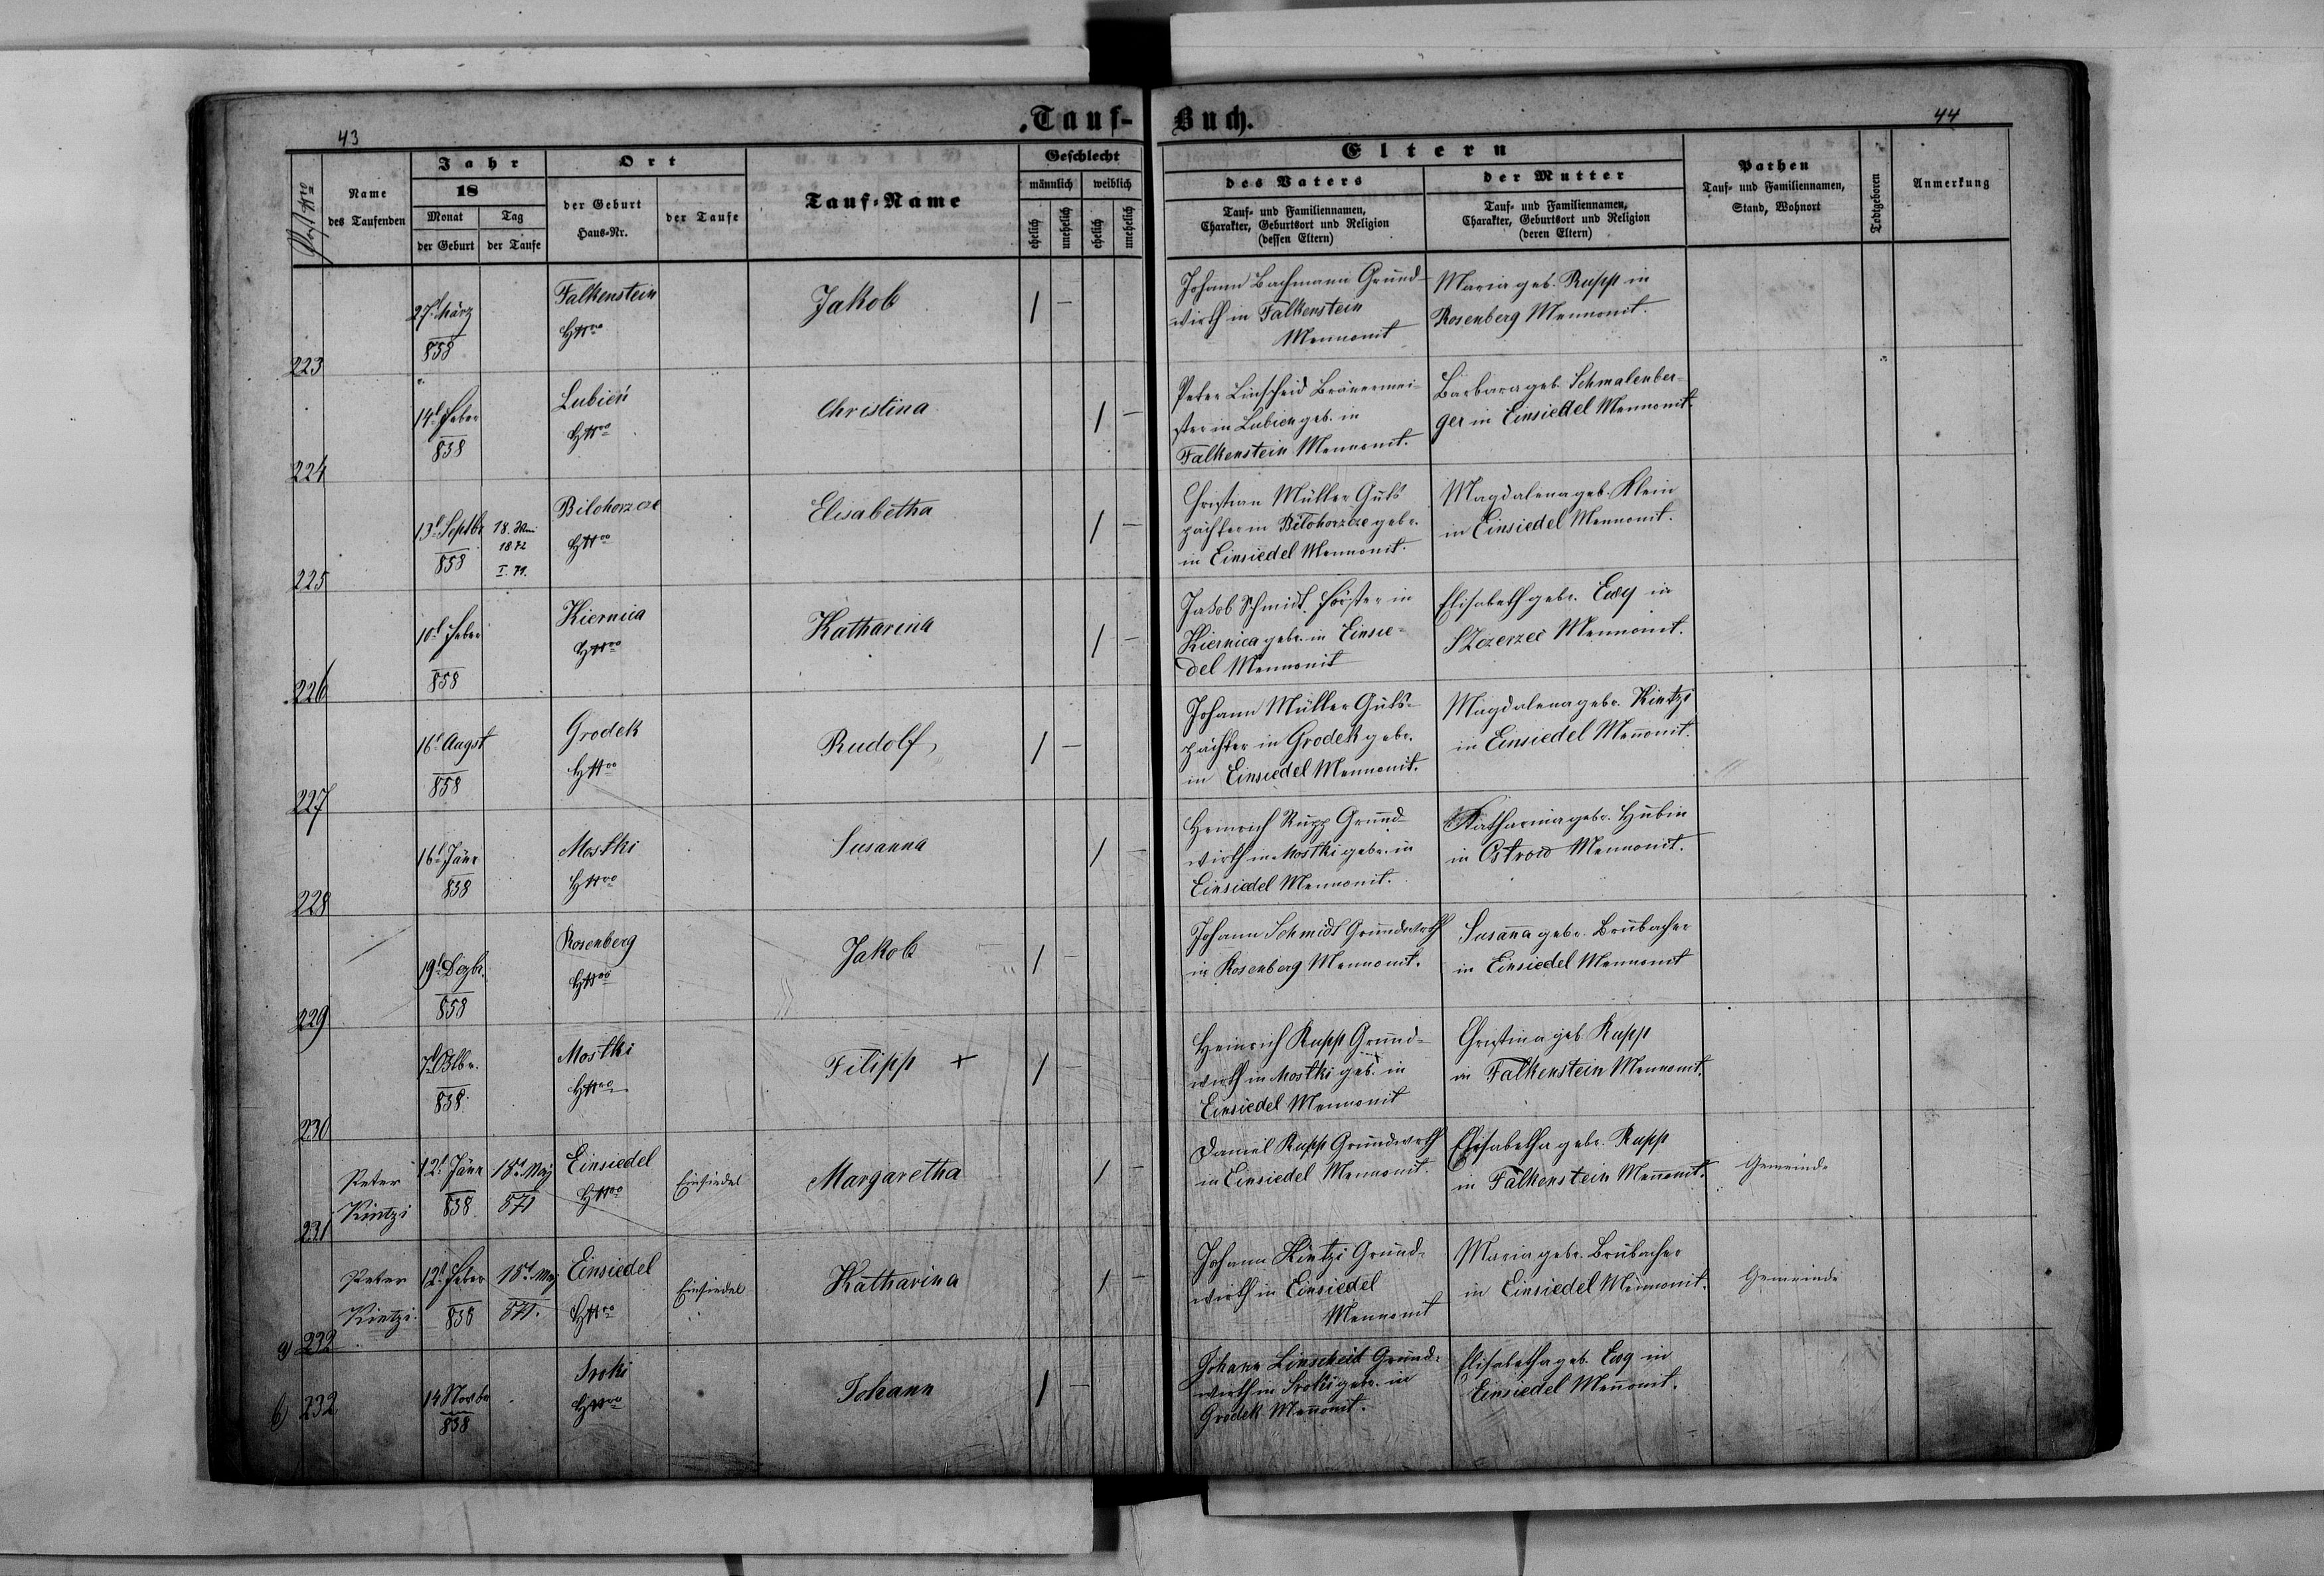 43
Tauf-
Buch.
44
Post
Name
des Taufenden
Jahr
18
Monat
Tag
der Geburt
der Taufe
Ort
der Geburt
Haus-Nr.
der Taufe
Tauf-Name
Geschlecht
männlich
weiblich
ehelich
unehelich
ehelich
unehelich
Eltern
des Vaters
Tauf- und Familiennamen,
Charakter, Geburtsort und Religion
(dessen Eltern)
der Mutter
Tauf- und Familiennamen,
Charakter, Geburtsort und Religion
(deren Eltern)
Pathen
Tauf- und Familiennamen,
Stand, Wohnort
Todtgeboren
Anmerkung
223
27t März
858
Falkenstein
Jakob
Johann Bachmann Grund-
wirth in Falkenstein
Mennonit
Maria geb. Rupp in
Rosenberg Mennonit.
224
14t Feber
858
Lubień
Christina
Peter Linscheid Bräuermei-
ster in Lubien geb. in
Falkenstein Mennonit.
Barbara geb. Schmalenber-
ger in Einsiedel Mennonit.
225
13t Septbr
858
18.
1872
I. 71.
Bilohorzcze
Elisabetha
Christian Müller Guts
pächter in Bilohorzcze gebr.
in Einsiedel Mennonit.
Magdalena geb. Klein
in Einsiedel Mennonit.
226
10t Feber
858
Kiernica
Katharina
Jakob Schmidt Förster in
Kiernica gebr. in Einsie-
del Mennonit
Elisabeth gebr. Ewy in
Szczerzec Mennonit.
227
16t Augst
858
Grodek
Rudolf
Johann Müller Guts-
pächter in Grodek gebr.
in Einsiedel Mennonit.
Magdalena gebr. Kintzi
in Einsiedel Mennonit.
228
16t Jänr
858
Mostki
Susanna
Heinrich Rupp Grund-
wirth in Mostki gebr. in
Einsiedel Mennonit.
Katharina gebr. Hubin
in Ostrow Mennonit.
229
19t Dezbr.
858
Rosenberg
Jakob
Johann Schmidt Grundwirth
in Rosenberg Mennonit.
Susanna gebr. Brubacher
in Einsiedel Mennonit
230
858
Mostki
Filipp +
Heinrich Rupp Grund-
wirth in Mostki geb. in
Einsiedel Mennonit
Christina geb Rupp
in Falkenstein Mennonit.
231
Peter
Kintzi
12t Jänr
858
18t May
871
Einsiedel
Einsiedel
Margaretha
Daniel Rupp Grundwirth
in Einsiedel Mennonit.
Elisabetha gebr. Rupp
in Falkenstein Mennonit.
Gemeinde
a) 232
Peter
Kintzi.
12t Feber
858
18t May
871.
Einsiedel
Einsiedel
Katharina
Johann Kintzi Grund-
wirth in Einsiedel
Mennonit
Maria gebr. Brubacher
in Einsiedel Mennonit.
Gemeinde
b) 232
14 Novbr
858
Sroki
Johann
Johann Linscheid Grund-
wirth in Sroki gebr. in
Grodek Mennonit.
Elisabetha geb. Ewy in
Einsiedel Mennonit.